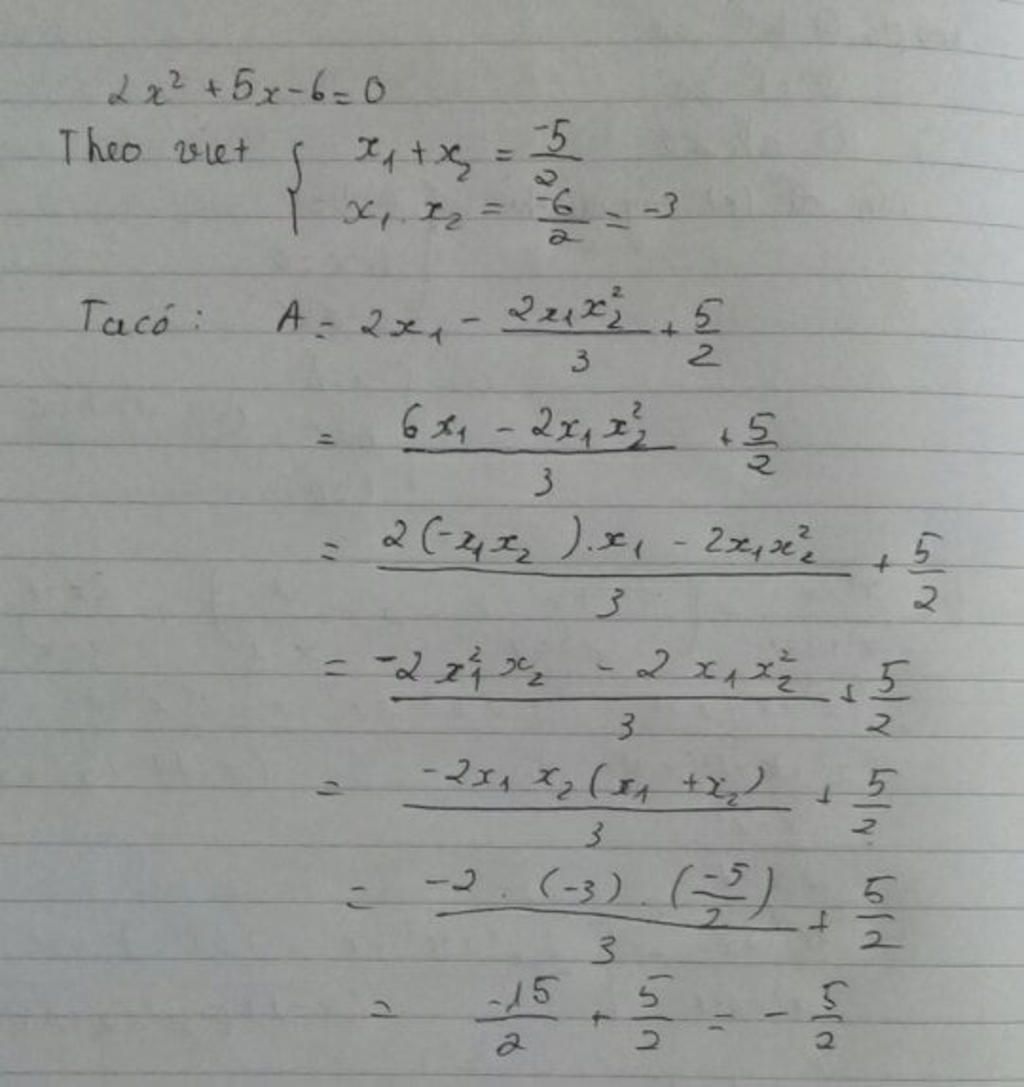 2x² + 5x - 6 = 0
Theo viet { x₁ + x₂ = -5/2
x₁ . x₂ = -6/2 = -3
Ta có : A = 2x₁ - 2x₁x₂²/3 + 5/2
= (6x₁ - 2x₁x₂²)/3 + 5/2
= (2(-x₁x₂).x₁ - 2x₁x₂²)/3 + 5/2
= (-2x₁²x₂ - 2x₁x₂²)/3 + 5/2
= -2x₁x₂(x₁ + x₂)/3 + 5/2
= -2 . (-3) . (-5/2)/3 + 5/2
= -15/2 + 5/2 = - 5/2